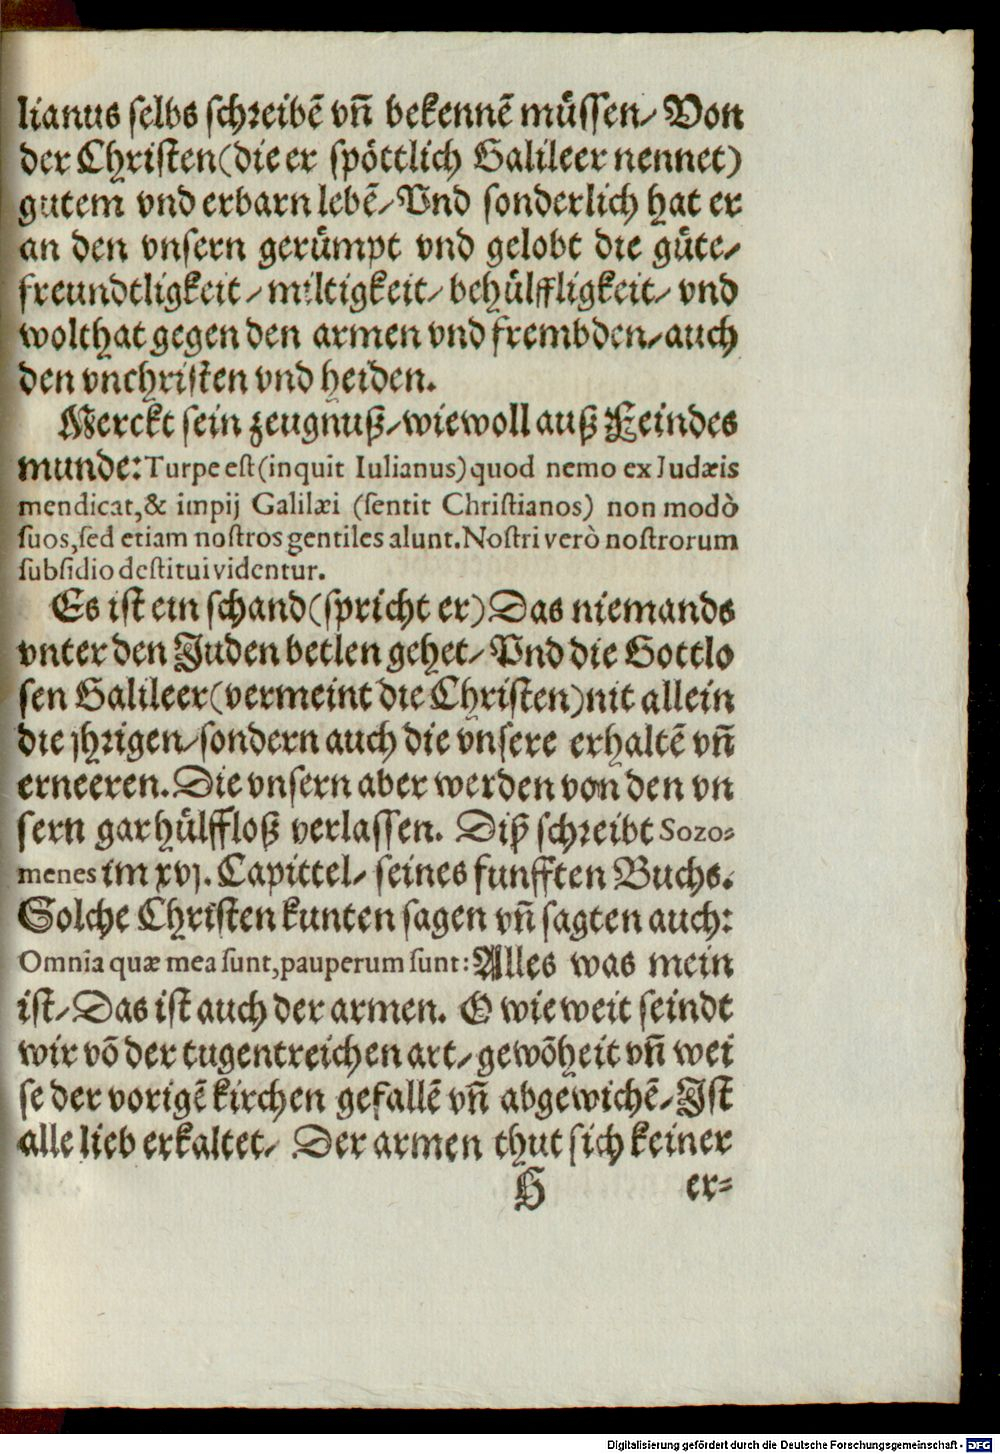 lianus selbs schreibẽ vñ bekennẽ müssen/ Von
der Christen (die er spöttlich Galileer nennet)
gutem vnd erbarn lebẽ/ Vnd sonderlich hat er
an den vnsern gerümpt vnd gelobt die güte/
freundtligkeit/ miltigkeit/ behülffligkeit/ vnd
wolthat gegen den armen vnd frembden/ auch
den vnchristen vnd heiden.
Merckt sein zeugnuß/ wiewoll auß Feindes
munde: Turpe est (inquit Iulianus) quod nemo ex Judæis
mendicat, & impij Galilæi (sentit Christianos) non modò
suos, sed etiam nostros gentiles alunt. Nostri verò nostrorum
subsidio destitui videntur.
Es ist ein schand (spricht er) Das niemands
vnter den Juden betlen gehet/ Vnd die Gottlo
sen Galileer (vermeint die Christen) nit allein
die jhrigen/ sondern auch die vnsere erhaltẽ vñ
erneeren. Die vnsern aber werden von den vn
sern gar hülffloß verlassen. Diß schreibt Sozo-
menes im xvj. Capittel/ seines funfften Buchs.
Solche Christen kunten sagen vñ sagten auch:
Omnia quæ mea sunt, pauperum sunt: Alles was mein
ist/ Das ist auch der armen. O wie weit seindt
wir võ der tugentreichen art/ gewõheit vñ wei
se der vorigẽ kirchen gefallẽ vñ abgewichẽ/ Ist
alle lieb erkaltet/ Der armen thut sich keiner
H er-
Digitalisierung gefördert durch die Deutsche Forschungsgemeinschaft - DFG